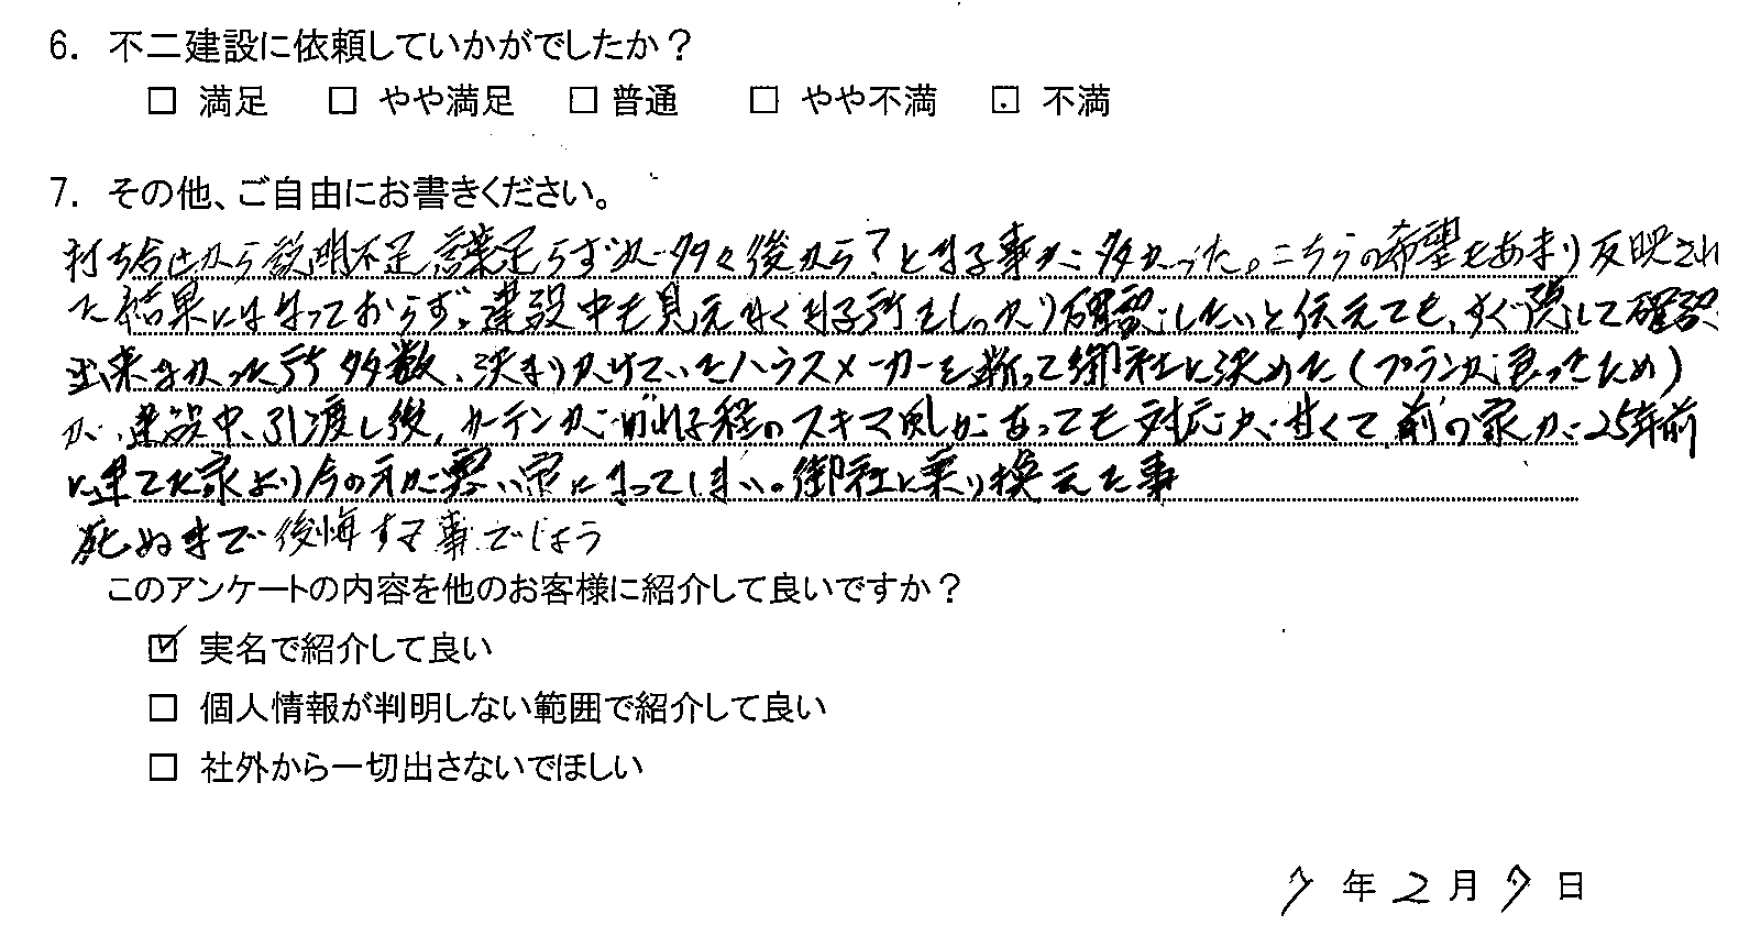 6. 不二建設に依頼していかがでしたか？
□ 満足 □ やや満足 □ 普通 □ やや不満 ⊡ 不満
7. その他、ご自由にお書きください。
打ち合せから説明不足、言葉足らずが多々後から？となる事が多かった。こちらの希望もあまり反映され
た結果にはなっておらず。建設中も見えなくなる所をしっかり確認したいと伝えても、すぐ隠して確認
出来なかった所多数、決まりかけていたハウスメーカーを断って御社に決めた（プランが良ったため）
が、建設中、引渡し後、カーテンがゆれる程のスキマ風があっても対応が甘くて前の家が25年前
に建てた家より今の方が悪い家になってしまい。御社に乗り換えた事
死ぬまで後悔する事でしょう
このアンケートの内容を他のお客様に紹介して良いですか？
☑ 実名で紹介して良い
□ 個人情報が判明しない範囲で紹介して良い
□ 社外から一切出さないでほしい
7 年 2 月 9 日